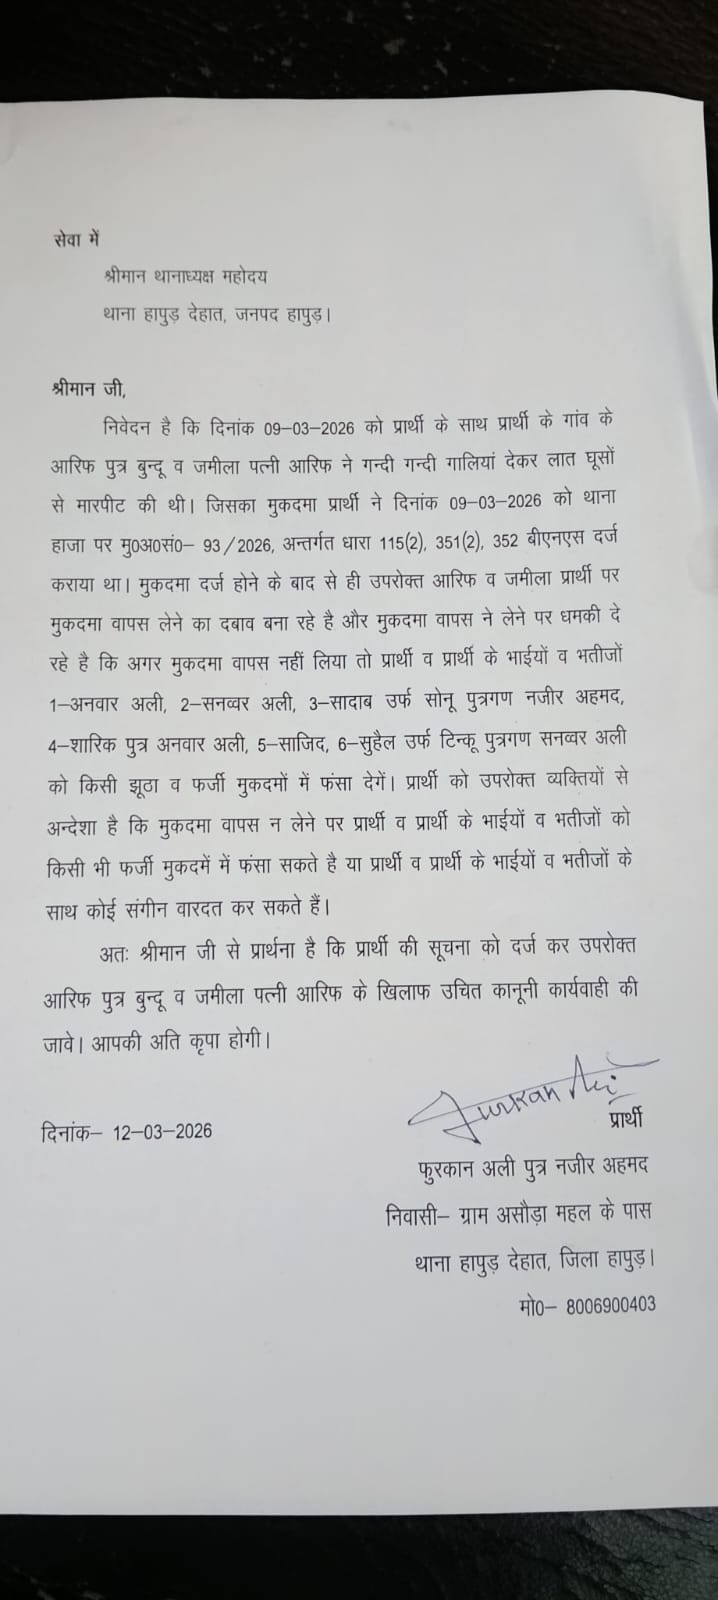 सेवा में
श्रीमान थानाध्यक्ष महोदय
थाना हापुड़ देहात, जनपद हापुड़।
श्रीमान जी,
निवेदन है कि दिनांक 09–03–2026 को प्रार्थी के साथ प्रार्थी के गांव के
आरिफ पुत्र बुन्दू व जमीला पत्नी आरिफ ने गन्दी गन्दी गालियां देकर लात घूसों
से मारपीट की थी। जिसका मुकदमा प्रार्थी ने दिनांक 09–03–2026 को थाना
हाजा पर मु0अ0सं0– 93/2026, अन्तर्गत धारा 115(2), 351(2), 352 बीएनएस दर्ज
कराया था। मुकदमा दर्ज होने के बाद से ही उपरोक्त आरिफ व जमीला प्रार्थी पर
मुकदमा वापस लेने का दबाव बना रहे है और मुकदमा वापस ने लेने पर धमकी दे
रहे है कि अगर मुकदमा वापस नहीं लिया तो प्रार्थी व प्रार्थी के भाईयों व भतीजों
1–अनवार अली, 2–सनव्वर अली, 3–सादाब उर्फ सोनू पुत्रगण नजीर अहमद,
4–शारिक पुत्र अनवार अली, 5–साजिद, 6–सुहैल उर्फ टिन्कू पुत्रगण सनव्वर अली
को किसी झूठा व फर्जी मुकदमों में फंसा देगें। प्रार्थी को उपरोक्त व्यक्तियों से
अन्देशा है कि मुकदमा वापस न लेने पर प्रार्थी व प्रार्थी के भाईयों व भतीजों को
किसी भी फर्जी मुकदमें में फंसा सकते है या प्रार्थी व प्रार्थी के भाईयों व भतीजों के
साथ कोई संगीन वारदत कर सकते हैं।
अतः श्रीमान जी से प्रार्थना है कि प्रार्थी की सूचना को दर्ज कर उपरोक्त
आरिफ पुत्र बुन्दू व जमीला पत्नी आरिफ के खिलाफ उचित कानूनी कार्यवाही की
जावे। आपकी अति कृपा होगी।
Furkan Ali
दिनांक– 12–03–2026
प्रार्थी
फुरकान अली पुत्र नजीर अहमद
निवासी– ग्राम असौड़ा महल के पास
थाना हापुड़ देहात, जिला हापुड़।
मो0– 8006900403